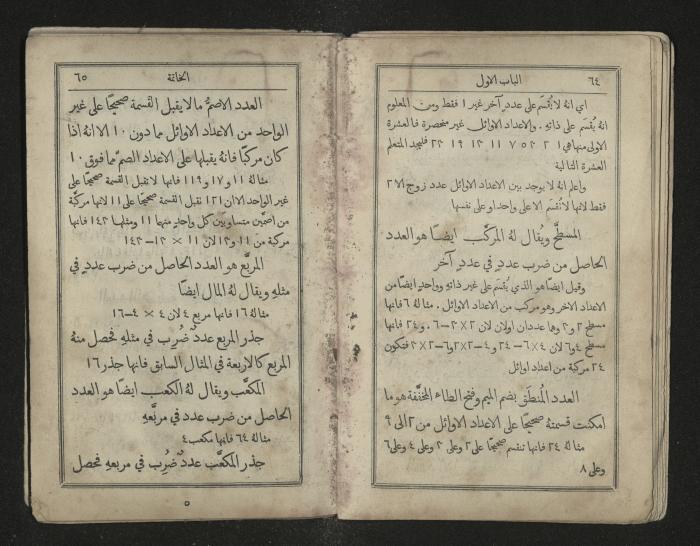 ٦٤
الباب الاول
اي انه لا يُقسَم على عدد آخر غير ١ فقط ومن المعلوم
انه يُقسَم على ذاته . والاعداد الاوائل غير منحصرة فالعشرة
الاولى منها هي ١ ٢ ٣ ٥ ٧ ١١ ١٣ ١٧ ١٩ ٢٣ فليجد المتعلم
العشرة التالية
واعلم انه لا يوجد بين الاعداد الاوائل عدد زوج الا ٢
فقط لانها لا تُقسَم الا على واحد او على نفسها
المسطَّح ويُقال لهُ المركَّب ايضا هو العدد
الحاصل من ضرب عددٍ في عددٍ آخر
وقيل ايضا هو الذي يُقسَم على غير ذاته وواحدٍ ايضا من
الاعداد الاخر وهو مركب من الاعداد الاوائل . مثالهُ ٦ فانها
مسطح ٢ و ٣ وهما عددان اولان لان ٢ × ٣ = ٦ . و ٢٤ فانها
مسطح ٤ و ٦ لان ٤ × ٦ = ٢٤ و ٤ = ٢ × ٢ و ٦ = ٢ × ٣ فتكون
٢٤ مركبة من اعداد اوائل
العدد المُنطَق بضم الميم وفتح الطاء المخففة هو ما
امكنت قسمتهُ صحيحًا على الاعداد الاوائل من ٢ الى ٩
مثالهُ ٢٤ فانها تنقسم صحيحًا على ٢ وعلى ٣ وعلى ٤ وعلى ٦
وعلى ٨
الخاتمة
٦٥
العدد الاصمُّ ما لا يقبل القسمة صحيحًا على غير
الواحد من الاعداد الاوائل مما دون ١٠ الا انه اذا
كان مركبًا فانهُ يقبلها على الاعداد الصمّ مما فوق ١٠
مثالهُ ١١ و ١٧ و ١١٩ فانها لا تقبل القسمة صحيحًا على
غير الواحد الا ان ١٢١ تقبل القسمة صحيحًا على ١١ لانها مركَّبة
من اصمَّين متساويين كل واحدٍ منهما ١١ ومثلها ١٤٣ فانها
مركبة من ١١ و ١٣ لان ١١ × ١٣ = ١٤٣
المربَّع هو العدد الحاصل من ضرب عددٍ في
مثلهِ ويقال لهُ المال ايضًا
مثالهُ ١٦ فانها مربع ٤ لان ٤ × ٤ = ١٦
جذر المربع عددٌ ضُرِب في مثلهِ فحصل منهُ
المربع كالاربعة في المثال السابق فانها جذر ١٦
المكعَّب ويقال لهُ الكعب ايضا هو العدد
الحاصل من ضرب عدد في مربعهِ
مثالهُ ٦٤ فانها مكعب ٤
جذر المكعَّب عددٌ ضُرِب في مربعهِ فحصل
٥